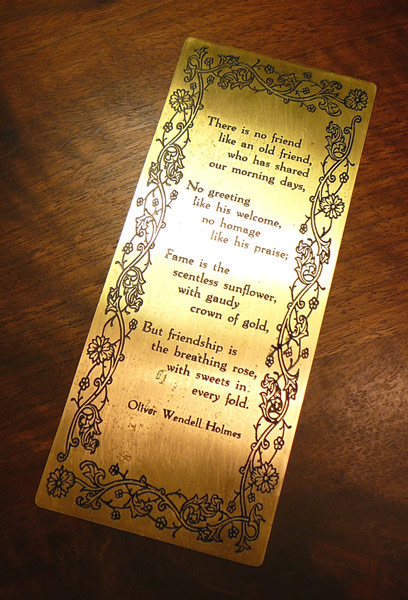 There is no friend
like an old friend,
who has shared
our morning days,
No greeting
like his welcome,
no homage
like his praise;
Fame is the
scentless sunflower,
with gaudy
crown of gold,
But friendship is
the breathing rose,
with sweets in
every fold.
Oliver Wendell Holmes